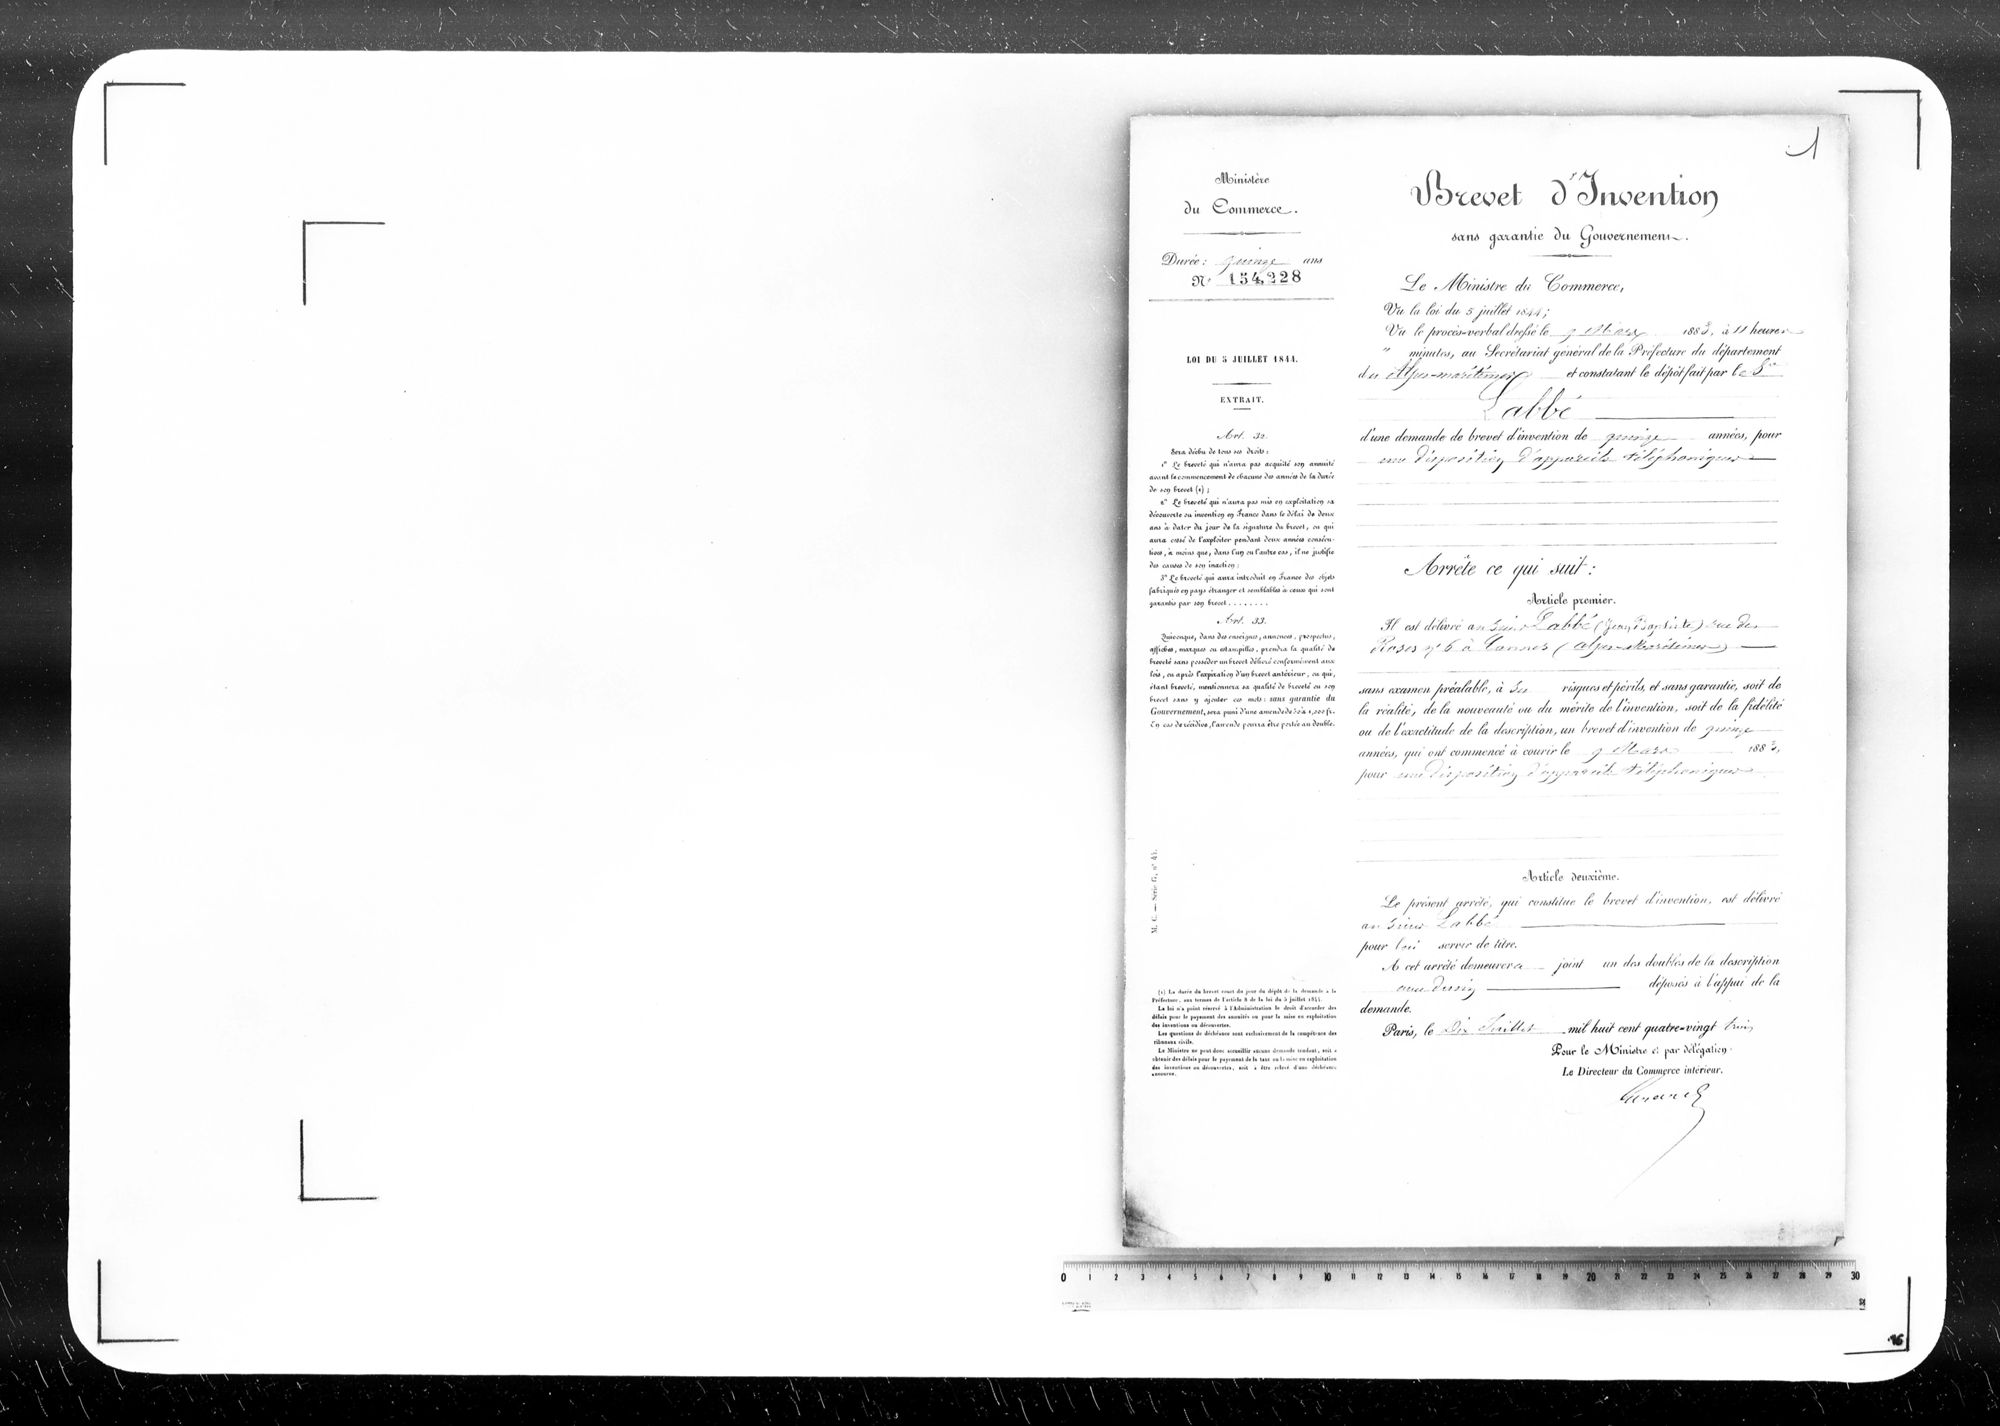 1
Ministère
du Commerce.
Durée : quinze ans
N° 154,228
LOI DU 5 JUILLET 1844.
EXTRAIT.
Art. 32.
Sera déchu de tous ses droits :
1° Le breveté qui n'aura pas acquitté son annuité
avant le commencement de chacune des années de la durée
de son brevet (1) ;
2° Le breveté qui n'aura pas mis en exploitation sa
découverte ou invention en France dans le délai de deux
ans à dater du jour de la signature du brevet, ou qui
aura cessé de l'exploiter pendant deux années consécu-
tives, à moins que, dans l'un ou l'autre cas, il ne justifie
des causes de son inaction ;
3° Le breveté qui aura introduit en France des objets
fabriqués en pays étranger et semblables à ceux qui sont
garantis par son brevet ........
Art. 33.
Quiconque, dans des enseignes, annonces, prospectus,
affiches, marques ou estampilles, prendra la qualité de
breveté sans posséder un brevet délivré conformément aux
lois, ou après l'expiration d'un brevet antérieur, ou qui,
étant breveté, mentionnera sa qualité de breveté ou son
brevet sans y ajouter ces mots : sans garantie du
Gouvernement, sera puni d'une amende de 50 à 1,000 fr.
En cas de récidive, l'amende pourra être portée au double.
M. C. — Série G, n° 41.
(1) La durée du brevet court du jour du dépôt de la demande à la
Préfecture, aux termes de l'article 8 de la loi du 5 juillet 1844.
La loi n'a point réservé à l'Administration le droit d'accorder des
délais pour le payement des annuités ou pour la mise en exploitation
des inventions ou découvertes.
Les questions de déchéance sont exclusivement de la compétence des
tribunaux civils.
Le Ministre ne peut donc accueillir aucune demande tendant, soit à
obtenir des délais pour le payement de la taxe ou la mise en exploitation
des inventions ou découvertes, soit à être relevé d'une déchéance
encourue.
Brevet d'Invention
sans garantie du Gouvernement.
Le Ministre du Commerce,
Vu la loi du 5 juillet 1844 ;
Vu le procès-verbal dressé le 9 Mars 1883, à 11 heures
" minutes, au Secrétariat général de la Préfecture du département
des Alpes-maritimes et constatant le dépôt fait par le Sr
Labbé
d'une demande de brevet d'invention de quinze années, pour
une disposition d'appareils téléphoniques
Arrête ce qui suit :
Article premier.
Il est délivré au Sieur Labbé (Jean Baptiste) rue des
Roses n° 6 à Cannes (Alpes-Maritimes)
sans examen préalable, à ses risques et périls, et sans garantie, soit de
la réalité, de la nouveauté ou du mérite de l'invention, soit de la fidélité
ou de l'exactitude de la description, un brevet d'invention de quinze
années, qui ont commencé à courir le 9 Mars 1883,
pour une disposition d'appareils téléphoniques
Article deuxième.
Le présent arrêté, qui constitue le brevet d'invention, est délivré
au Sieur Labbé
pour lui servir de titre.
A cet arrêté demeurera joint un des doubles de la description
avec dessin déposés à l'appui de la
demande.
Paris, le Dix Juillet mil huit cent quatre-vingt trois
Pour le Ministre et par délégation :
Le Directeur du Commerce intérieur.
0 1 2 3 4 5 6 7 8 9 10 11 12 13 14 15 16 17 18 19 20 21 22 23 24 25 26 27 28 29 30